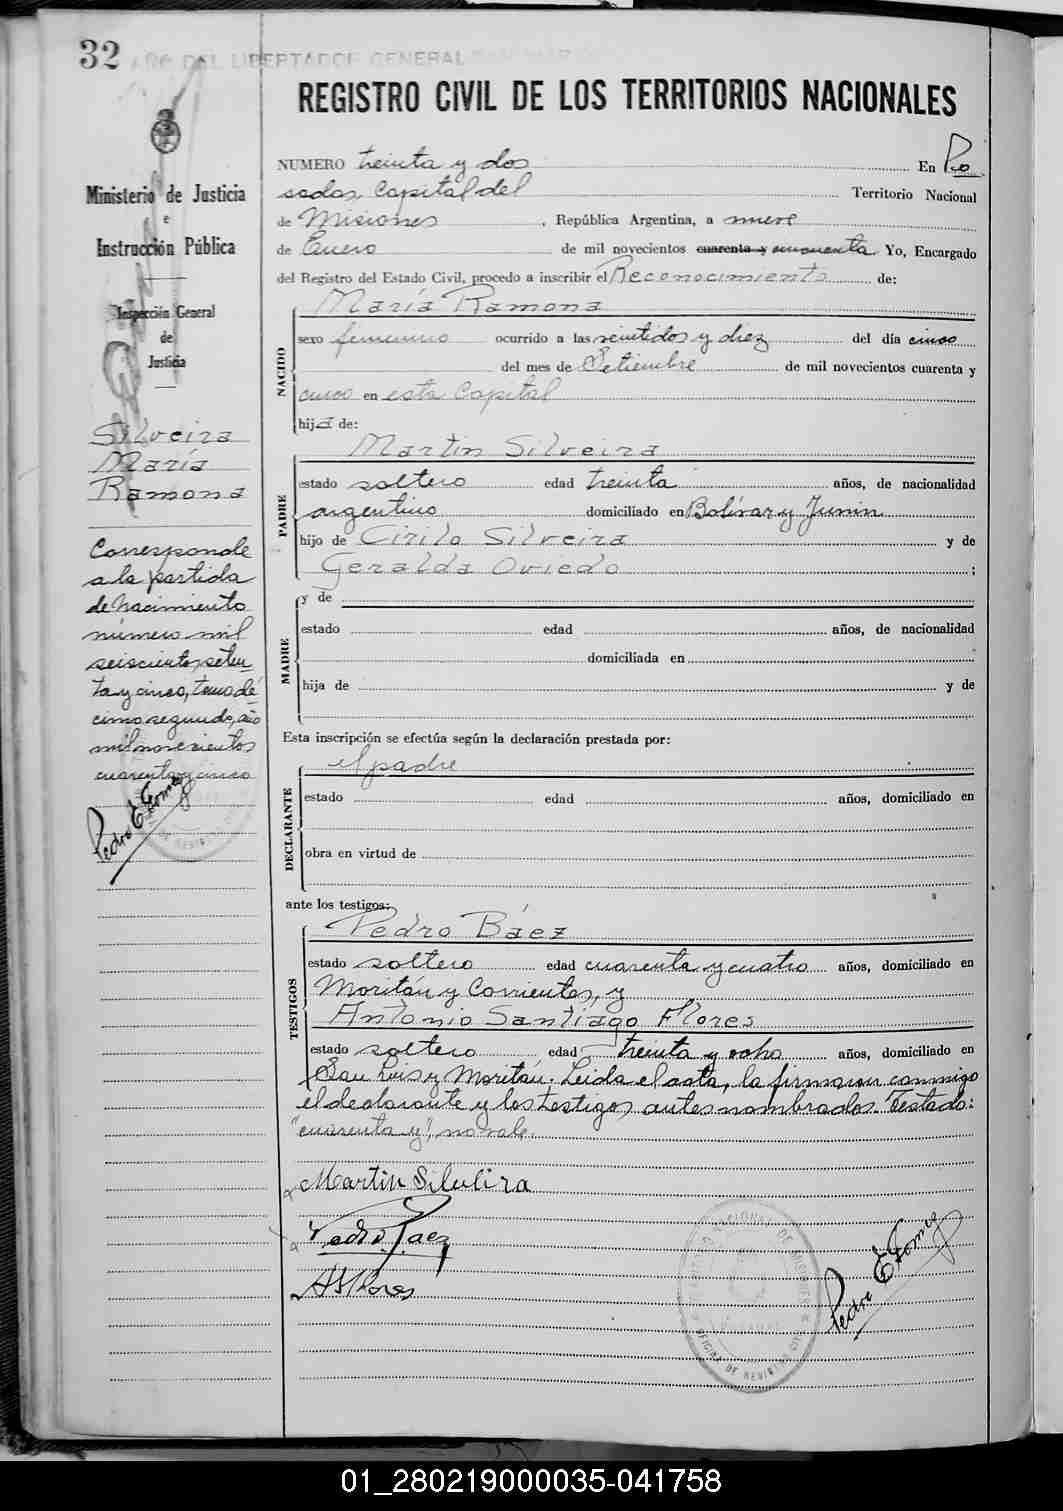 32 AÑO DEL LIBERTADOR GENERAL
REGISTRO CIVIL DE LOS TERRITORIOS NACIONALES
Ministerio de Justicia
e
Instrucción Pública
Inspección General
de
Justicia
Silveira
María
Ramona
Corresponde
a la partida
de Nacimiento
número mil
seiscientos seten-
ta y cinco, tomo dé
cimo segundo, año
mil novecientos
cuarenta y cinco
Pedro E. Gomez
NUMERO treinta y dos En Po
sadas, Capital del Territorio Nacional
de Misiones, República Argentina, a nueve
de Enero de mil novecientos cuarenta y cincuenta Yo, Encargado
del Registro del Estado Civil, procedo a inscribir el Reconocimiento de:
NACIDO
María Ramona
sexo femenino ocurrido a las veintidos y diez del día cinco
del mes de Setiembre de mil novecientos cuarenta y
cinco en esta Capital
hija de:
PADRE
Martin Silveira
estado soltero edad treinta años, de nacionalidad
argentino domiciliado en Bolívar y Junin
hijo de Cirilo Silveira y de
Geralda Oviedo;
MADRE
y de
estado edad años, de nacionalidad
domiciliada en
hija de y de
Esta inscripción se efectúa según la declaración prestada por:
DECLARANTE
el padre
estado edad años, domiciliado en
obra en virtud de
ante los testigos:
TESTIGOS
Pedro Báez
estado soltero edad cuarenta y cuatro años, domiciliado en
Moritán y Corrientes, y
Antonio Santiago Flores
estado soltero edad treinta y ocho años, domiciliado en
San Luis y Moritán. Leida el acta, la firmaron conmigo
el declarante y los testigos antes nombrados. Testado:
"cuarenta y", no vale.
Martin Silveira
Pedro Baez
A S Flores
TERRITORIO NACIONAL DE MISIONES
OFICINA DE REGISTRO CIVIL
Pedro E Gomez
01_280219000035-041758